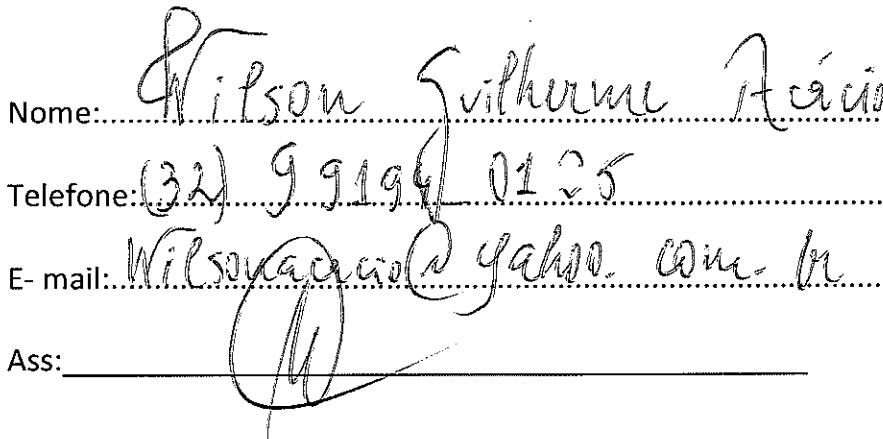 Nome: Wilson Guilherme Acácio
Telefone: (32) 9 9194 0125
E- mail: Wilsonacacio@yahoo.com.br
Ass: